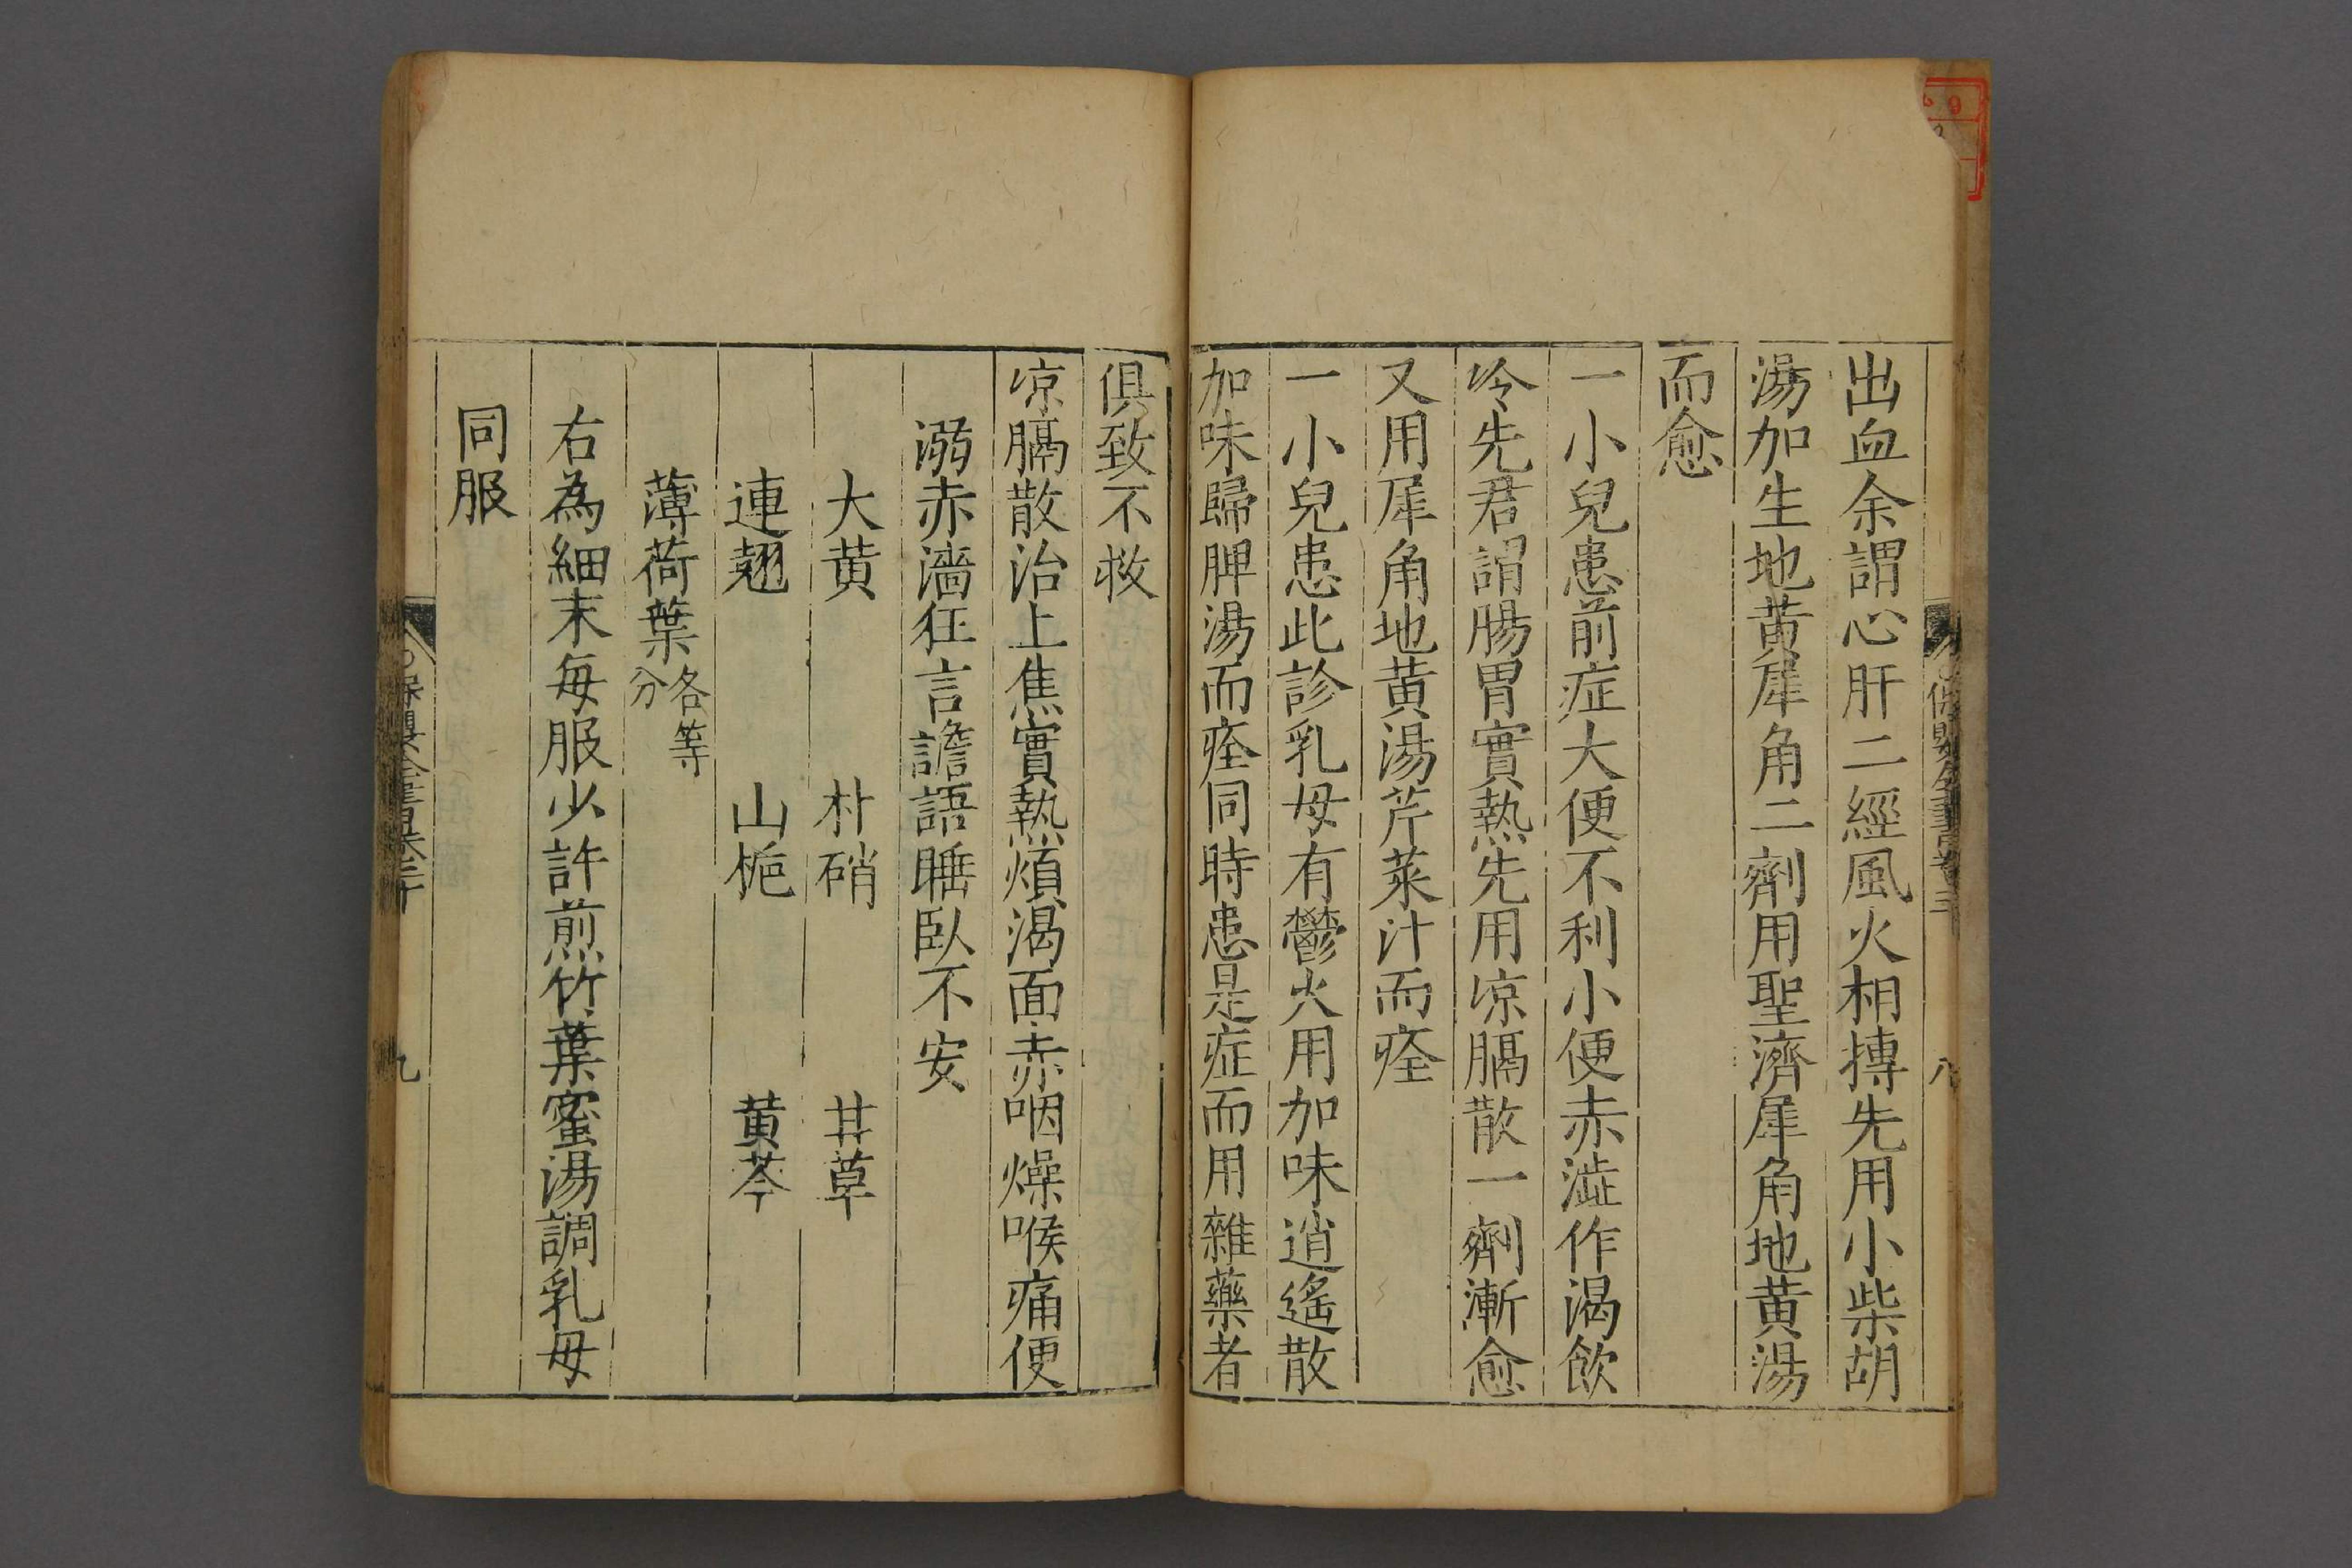 出血余謂心肝二經風火相摶先用小柴胡
湯加生地黄犀角二劑用聖濟犀角地黄湯
而愈
一小兒患前症大便不利小便赤澁作渴飲
冷先君謂腸胃實熱先用凉膈散一劑漸愈
又用犀角地黄湯芹菜汁而痊
一小兒患此診乳母有鬱火用加味逍遙散
加味歸脾湯而痊同時患是症而用雜藥者
八
俱致不救
凉膈散治上焦實熱煩渴面赤咽燥喉痛便
溺赤濇狂言譫語睡臥不安
大黄 朴硝 甘草
連翹 山梔 黄芩
薄荷葉各等分
右為細末每服少許煎竹葉蜜湯調乳母
同服
保嬰全書卷二十
九